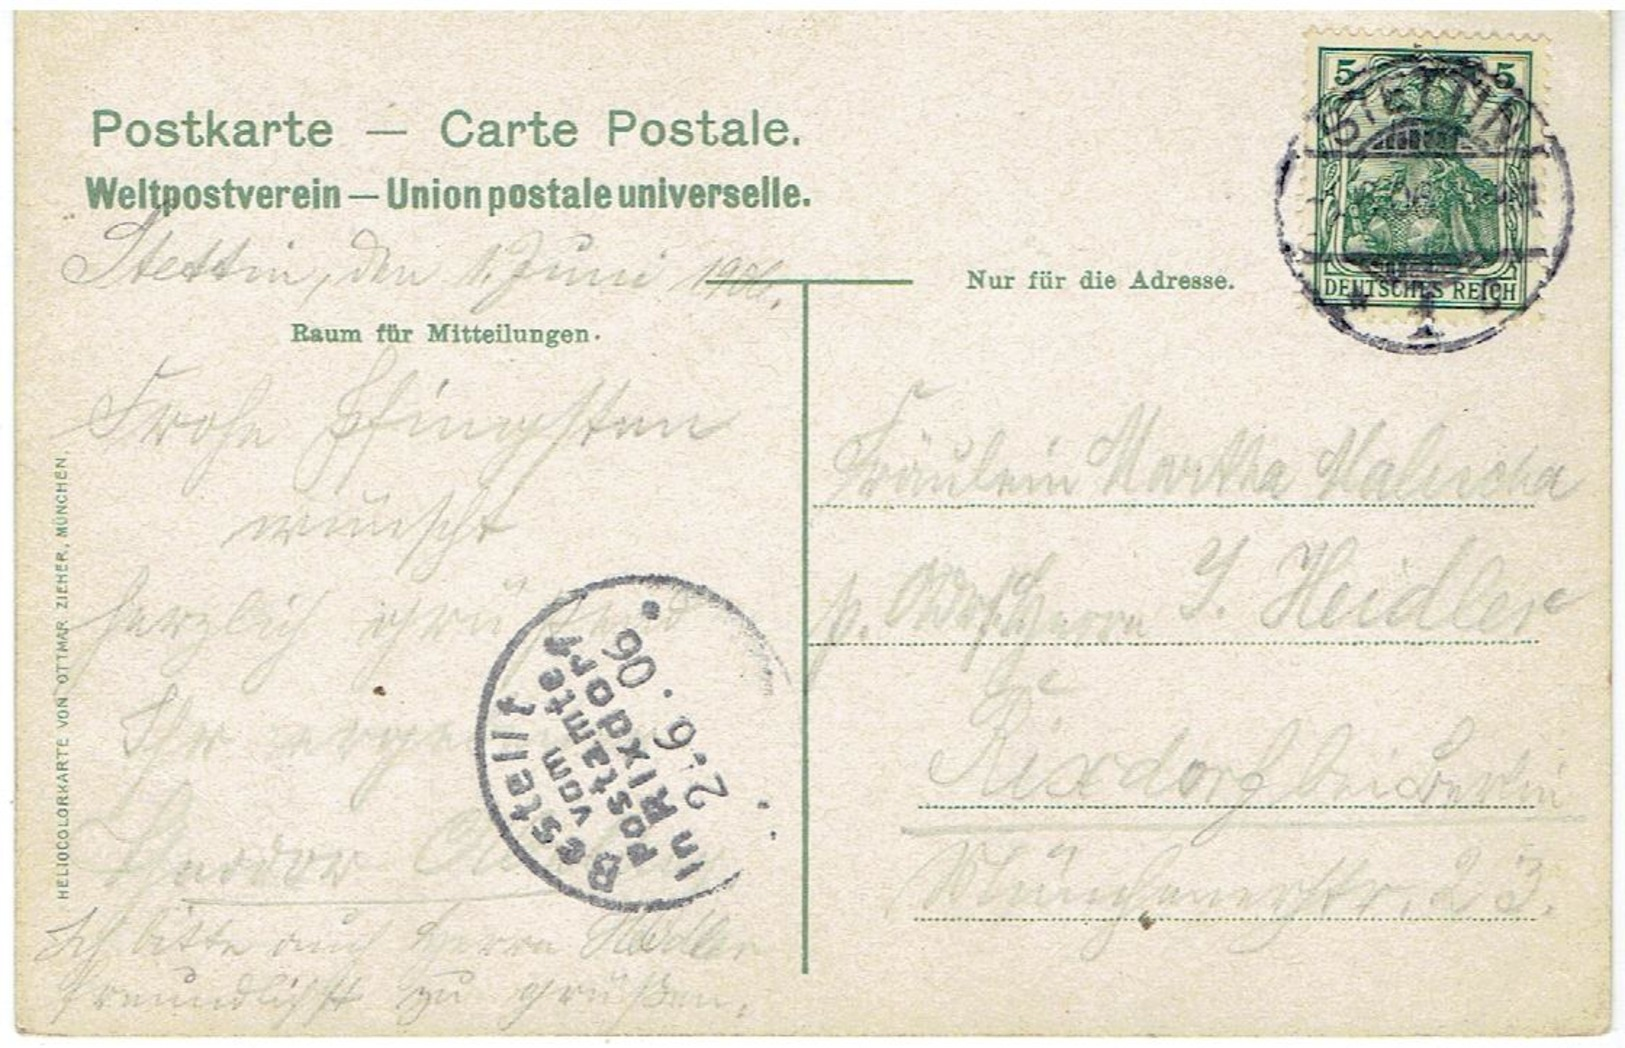 Postkarte — Carte Postale.
Weltpostverein — Union postale universelle.
Stettin, den 1. Juni 1906.
Raum für Mitteilungen.
Frohe Pfingsten
wünscht
herzlich grüßend
Ihr
Theodor
Ich bitte auch Herrn Heidler
freundlichst zu grüßen.
HELIOCOLORKARTE VON OTTMAR ZIEHER, MÜNCHEN.
Bestellt
vom
Postamte
In Rixdorf
2.6.06
5 5
DEUTSCHES REICH
STETTIN
1
Nur für die Adresse.
Fräulein Martha
p. Adr. Herrn J. Heidler
Rixdorf bei Berlin
Münchenerstr. 23.